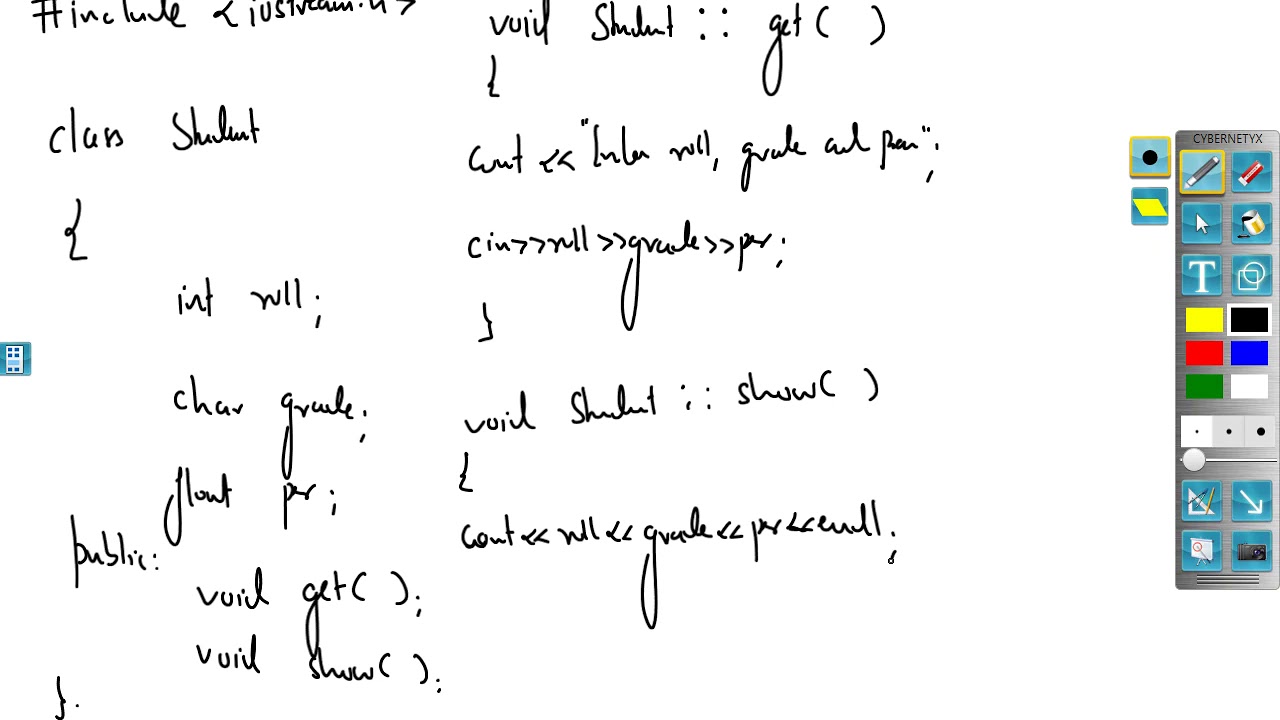 #include <iostream.h>
class Student
{
int roll;
char grade;
float per;
public:
void get( );
void show( );
};
void Student :: get( )
{
cout << "Enter roll, grade and per";
cin>>roll>>grade>>per;
}
void Student :: show( )
{
cout<<roll<<grade<<per<<endl;
CYBERNETYX
T